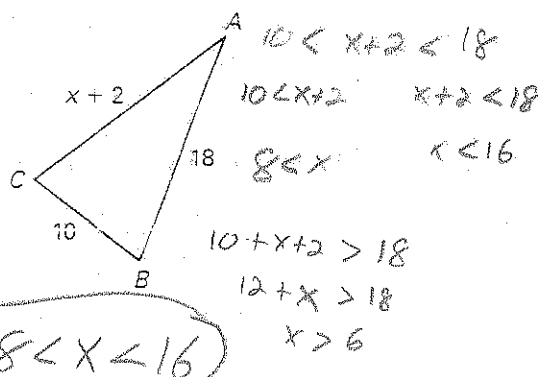 A
x + 2
C
18
10
B
10 < x+2 < 18
10 < x+2 x+2 < 18
8 < x x < 16
10 + x+2 > 18
12 + x > 18
x > 6
8 < x < 16